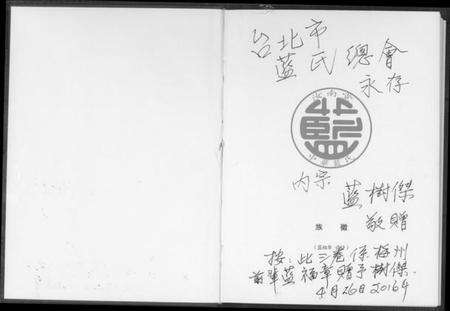 台北市
藍氏總會
永存
汝南堂
藍
中華藍氏
內宗
藍樹傑
敬贈
族徽
按：此三卷係梅州
前輩藍福章贈予樹傑.
4月26日2016年